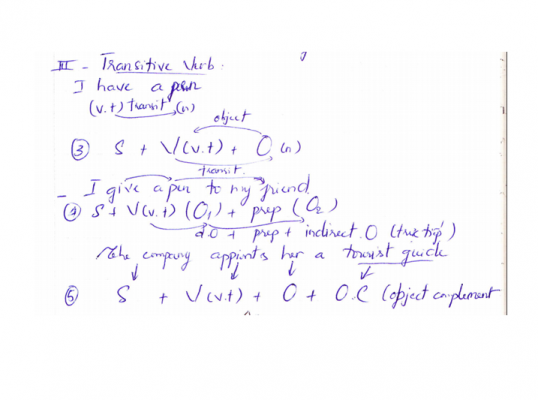 III - Transitive Verb.
I have a pen
(v.t) transit (n)
object
③ S + V(v.t) + O (n)
transit.
- I give a pen to my friend
④ S + V(v.t) (O1) + prep (O2)
d.O + prep + indirect.O (trực tiếp)
The company appoints her a tourist guide
⑤ S + V(v.t) + O + O.C (object complement